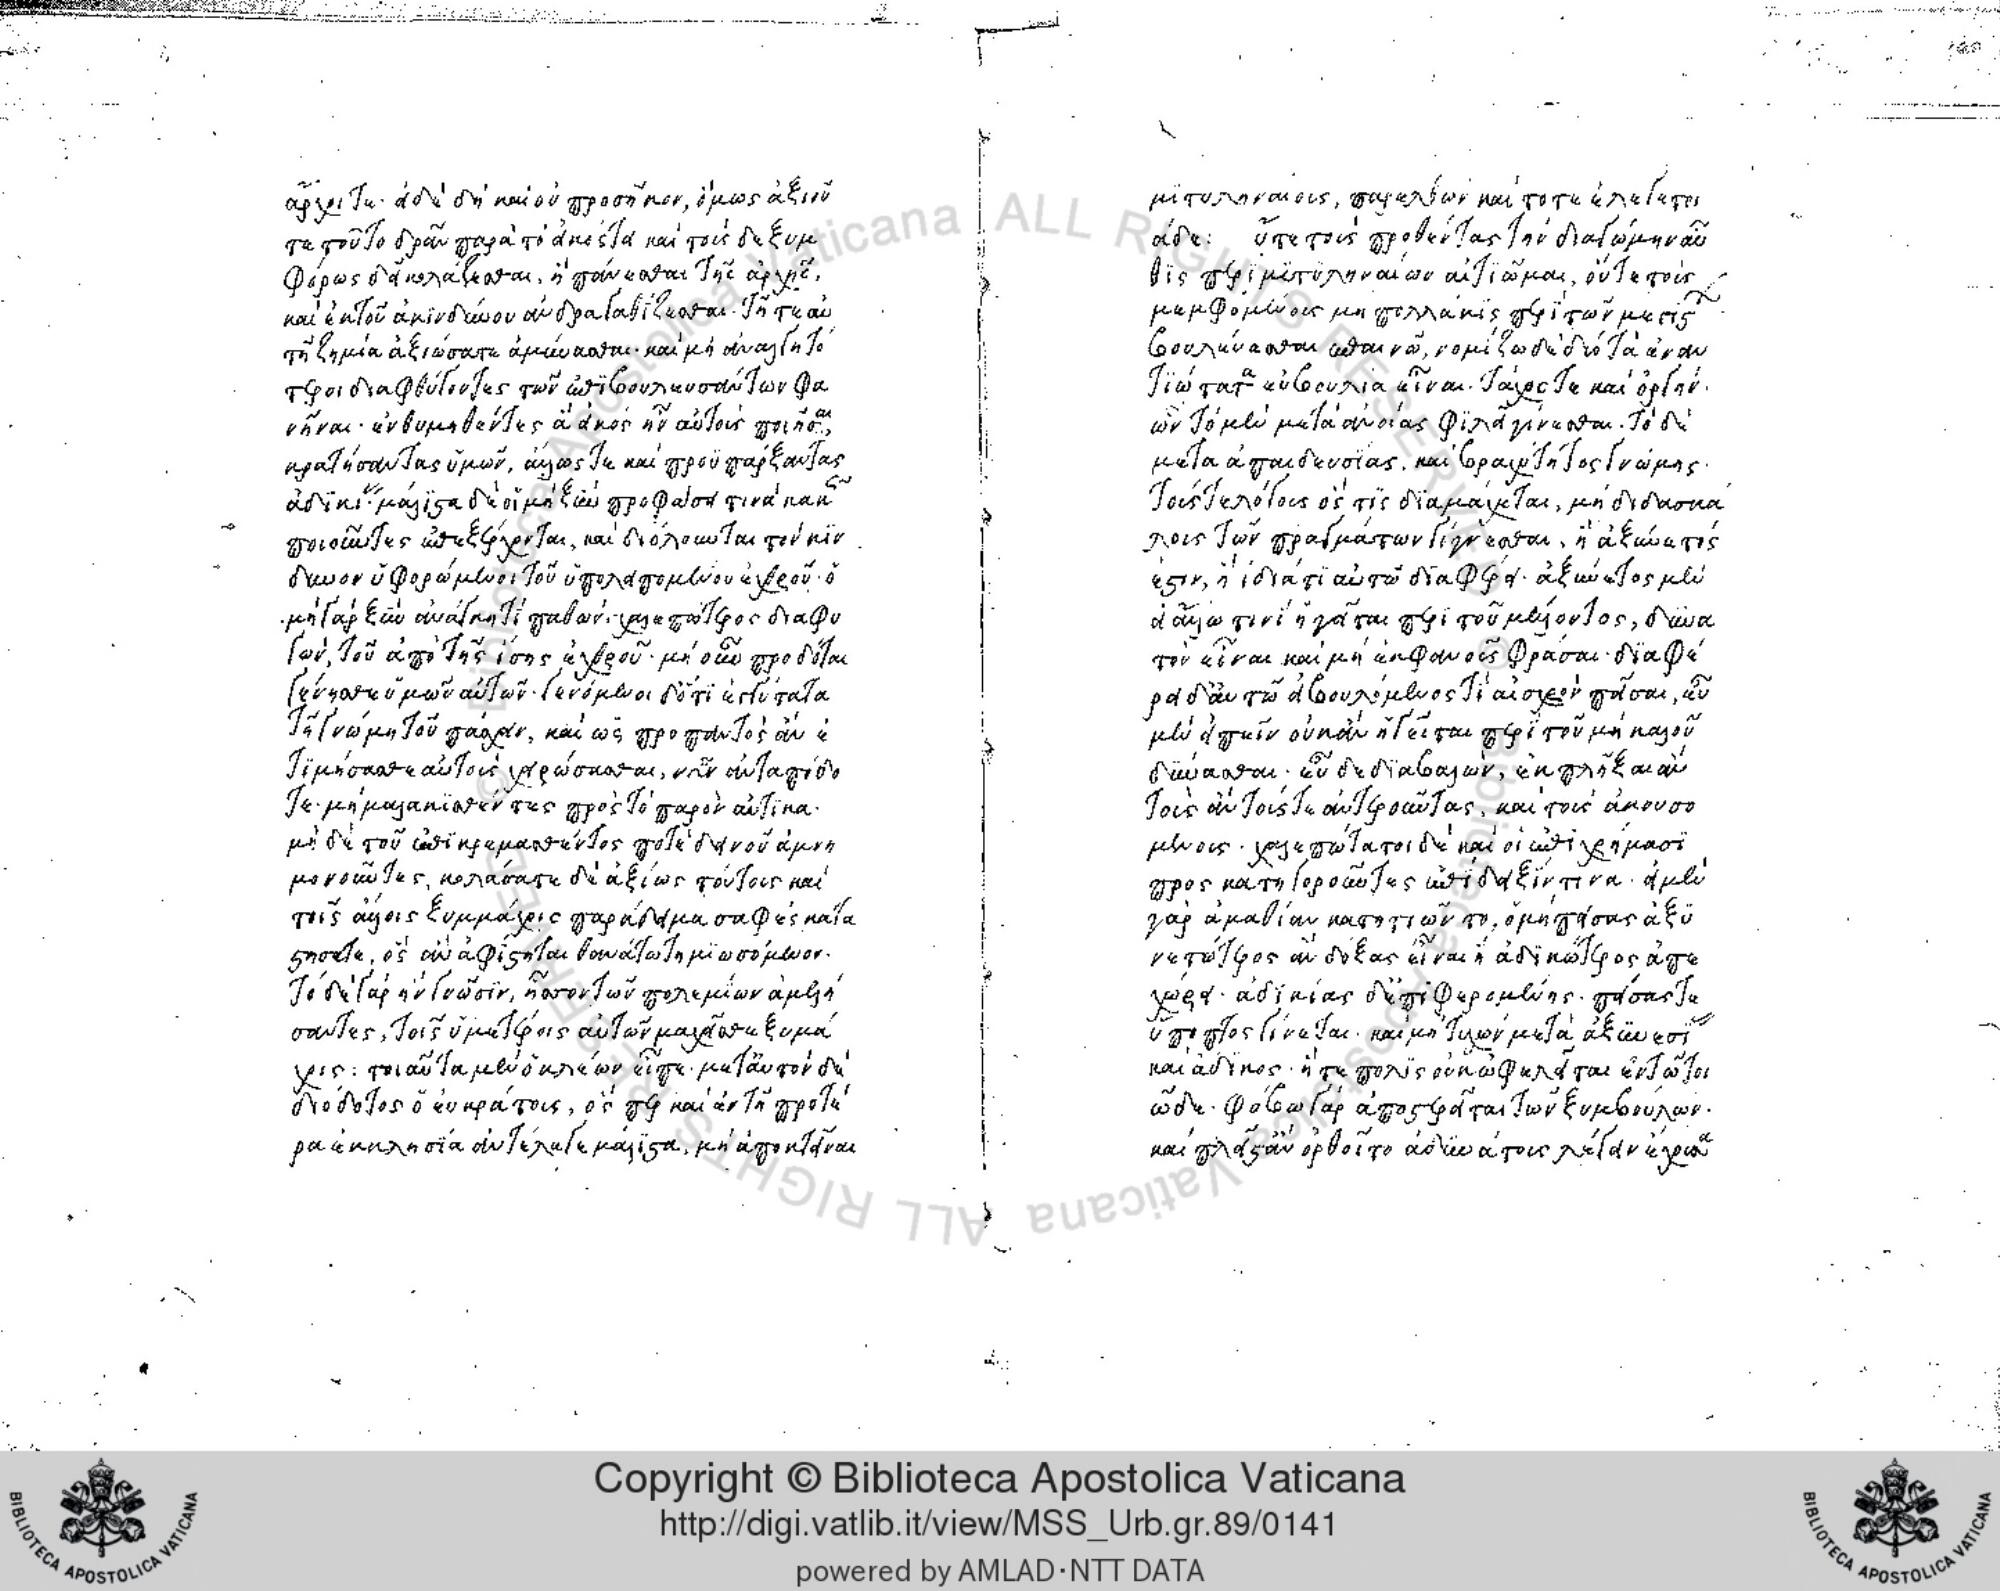 ἄρχοιτε· εἰ δὲ δὴ καὶ οὐ προσῆκον, ὅμως ἀξιοῦ
τε τοῦτο δρᾶν παρὰ τὸ εἰκός τὰ καὶ τούσδε ξυμ
φόρως δεῖ κολάζεσθαι, ἢ παύεσθαι τῆς ἀρχῆς,
καὶ ἐκ τοῦ ἀκινδύνου ἀνδραγαθίζεσθαι· τῆ τε αὐ
τῆ ζημία ἀξιώσατε ἀμύνασθαι· καὶ μὴ ἀναλγητό
τεροι διαφυγόντες τῶν ἐπιβουλευσάντων φα
νῆναι· ἐνθυμηθέντες ἃ εἰκὸς ἦν αὐτοὺς ποιῆσαι,
κρατήσαντας ὑμῶν, ἄλλως τε καὶ προϋπάρξαντας
ἀδικίας· μάλιστα δὲ οἱ μὴ ξὺν προφάσει τινὰ κακῶς
ποιοῦντες ἐπεξέρχονται, καὶ διόλλυνται τὸν κίν
δυνον ὑφορώμενοι τοῦ ὑπολειπομένου ἐχθροῦ· ὁ
μὴ γὰρ ξὺν ἀνάγκη τι παθὼν, χαλεπώτερος διαφυ
γὼν, τοῦ ἀπὸ τῆς ἴσης ἐχθροῦ· μὴ οὖν προδόται
γένησθε ὑμῶν αὐτῶν· γενόμενοι δ' ὅτι ἐγγύτατα
τῆ γνώμη τοῦ πάσχειν, καὶ ὡς πρὸ παντὸς ἂν ἐ
τιμήσασθε αὐτοὺς χειρώσασθαι, νῦν ἀνταπόδο
τε· μὴ μαλακισθέντες πρὸς τὸ παρὸν αὐτίκα·
μὴ δὲ τοῦ ἐπικρεμασθέντος ποτὲ δεινοῦ ἀμνη
μονοῦντες, κολάσατε δὲ ἀξίως τούτους καὶ
τοῖς ἄλλοις ξυμμάχοις παράδειγμα σαφὲς κατα
στήσατε, ὃς ἂν ἀφίστηται θανάτω ζημιωσόμενον·
τὸ δὲ γὰρ ἢν γνῶσιν, ἧσσον τῶν πολεμίων ἀμελή
σαντες, τοῖς ὑμετέροις αὐτῶν μαχεῖσθε ξυμά
χοις: τοιαῦτα μὲν ὁ κλέων εἶπε· μετὰ δ' αὐτὸν δὲ
διόδοτος ὁ εὐκράτους, ὅς περ καὶ ἐν τῆ προτέ
ρα ἐκκλησία ἀντέλεγε μάλιστα, μὴ ἀποκτεῖναι
μιτυληναίους, παρελθὼν καὶ τότε ἔλεγε τοι
άδε: οὔτε τοὺς προθέντας τὴν διαγνώμην αὖ
θις περὶ μιτυληναίων αἰτιῶμαι, οὔτε τοὺς
μεμφομένους μὴ πολλάκις περὶ τῶν μεγίστων
βουλεύεσθαι ἐπαινῶ, νομίζω δὲ δύο τὰ ἐναν
τιώτατα εὐβουλία εἶναι· τάχος τε καὶ ὀργήν·
ὧν τὸ μὲν μετὰ ἀνοίας φιλεῖ γίνεσθαι· τὸ δὲ
μετὰ ἀπαιδευσίας, καὶ βραχύτητος γνώμης·
τούς τε λόγους ὅς τις διαμάχεται, μὴ διδασκά
λους τῶν πραγμάτων γίγνεσθαι, ἢ ἀξύνετός
ἐστιν, ἢ ἰδία τι αὐτῶ διαφέρει· ἀξύνετος μὲν
εἰ ἄλλω τινὶ ἡγεῖται περὶ τοῦ μέλλοντος, δυνα
τὸν εἶναι καὶ μὴ ἐμφανοῦς φράσαι· διαφέ
ρει δ' αὐτῶ εἰ βουλόμενός τι αἰσχρὸν πεῖσαι, εὖ
μὲν εἰπεῖν οὐκ ἂν ἡγεῖται περὶ τοῦ μὴ καλοῦ
δύνασθαι· εὖ δὲ διαβαλὼν, ἐκπλῆξαι ἂν
τοὺς ἂν τούς τε ἀντεροῦντας, καὶ τοὺς ἀκουσο
μένους· χαλεπώτατοι δὲ καὶ οἱ ἐπὶ χρήμασι
προσκατηγοροῦντες ἐπίδειξίν τινα· εἰ μὲν
γὰρ ἀμαθίαν κατητιῶντο, ὁ μὴ πείσας ἀξυ
νετώτερος ἂν δόξας εἶναι ἢ ἀδικώτερος ἀπε
χώρει· ἀδικίας δ' ἐπιφερομένης· πείσας τε
ὕποπτος γίνεται· καὶ μὴ τυχὼν μετὰ ἀξυνεσίας
καὶ ἄδικος· ἥ τε πόλις οὐκ ὠφελεῖται ἐν τῶ τοι
ῶδε· φόβω γὰρ ἀποστερεῖται τῶν ξυμβούλων·
καὶ πλεῖστ' ἂν ὀρθοῖτο ἀδυνάτους λέγειν ἔχουσα
Copyright © Biblioteca Apostolica Vaticana
http://digi.vatlib.it/view/MSS_Urb.gr.89/0141
powered by AMLAD·NTT DATA